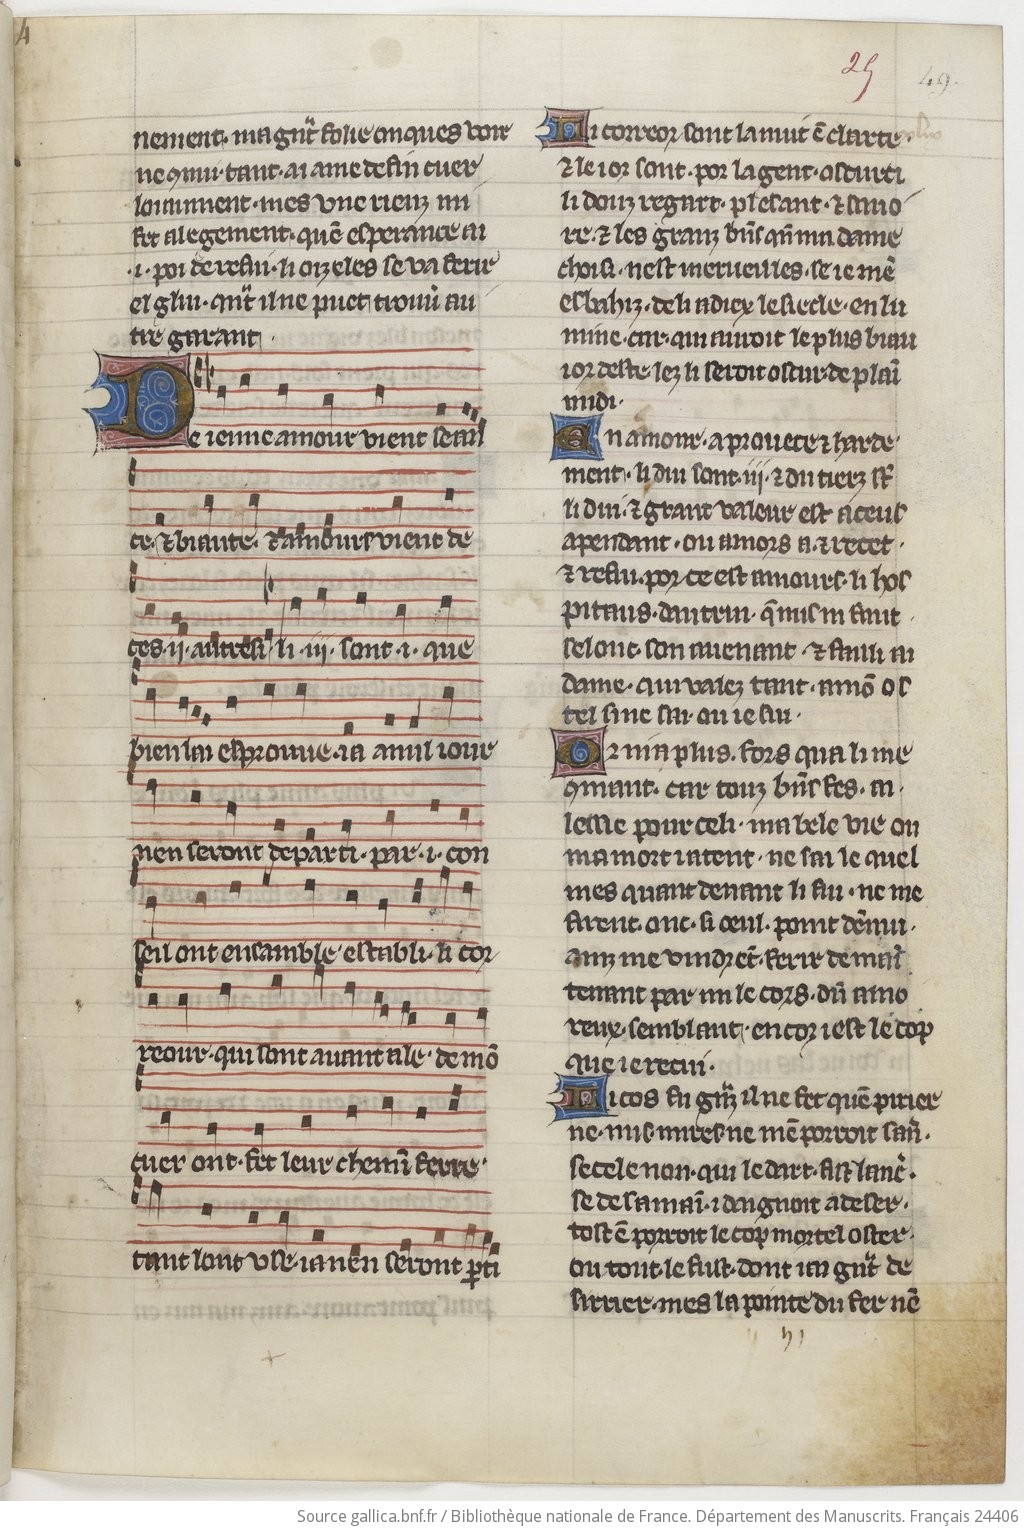 25
49.
nement. ma grãt folie onques voir
ne 9nui. tant. ai ame de fin cuer
loiaument. mes vne rienz mi
fet alegement. quē esperance ai
.i. poi de refui. li oizeles se va ferir
el glui. qñt il ne puet trouu̾ au
tre garant.
De ienne amour vient sean
ce. ⁊ biaute. ⁊ amours vient de
ces .ii. autresi li .iii. sont .i. que
bien lai esprouue. ia a nul iour
nen seront departi. par .i. con
seil ont ensamble establi. li cor
reour. qui sont auant ale. de mō
cuer ont. fet leur chemī ferre.
tant lont vse. ia nen seront pti
Li correor sont la nuit ē clarte.
⁊ le ior sont. por la gent. oscurci
li douz regart. plesant. ⁊ sauo
re. ⁊ les granz bn̄s qn̄ ma dame
choisi. nest merueilles. se ie mē
esbahiz. de li a diex le siecle. enlu
mine. car. qui auroit le plus biau
ior deste. lez li seroit oscur. de plaī
midi.
En amour. a prouece ⁊ harde
ment. li dui sont .iij. ⁊ du tierz st̄
li dui. ⁊ grant valeur est a ceus
apendant. ou amors a. ⁊ recet.
⁊ refui. por ce est amours. li hos
pitaus. dautrui. q̄ nus ni faut
selonc. son auenant. ⁊ failli ai
dame. qui valez tant. a mō os
tel si ne sai. ou ie sui.
Or ni a plus. fors qua li me
9mant. car touz bn̄s fes. ai.
lessie pour celi. ma bele vie ou
ma mort i atent. ne sai le quel
mes quant deuant li fui. ne me
firent. onc. si oeul. point dēnui.
ainz me vindrēt. ferir de main̄
tenant par mi le cors. dū amo
reux. semblant. encor i est le cop
que ie recui.
Li cos fu grāz il ne fet quē pirier
ne. nus. mires. ne mē porroit san̄.
se cele non. qui le dart. fist lanc̄.
se de sa maī. i daignoit adeser.
tost ē porroit le cop mortel oster.
ou tout le fust. dont iai grāt de
sirrier. mes la pointe du fer nē
Source gallica.bnf.fr / Bibliothèque nationale de France. Département des Manuscrits. Français 24406